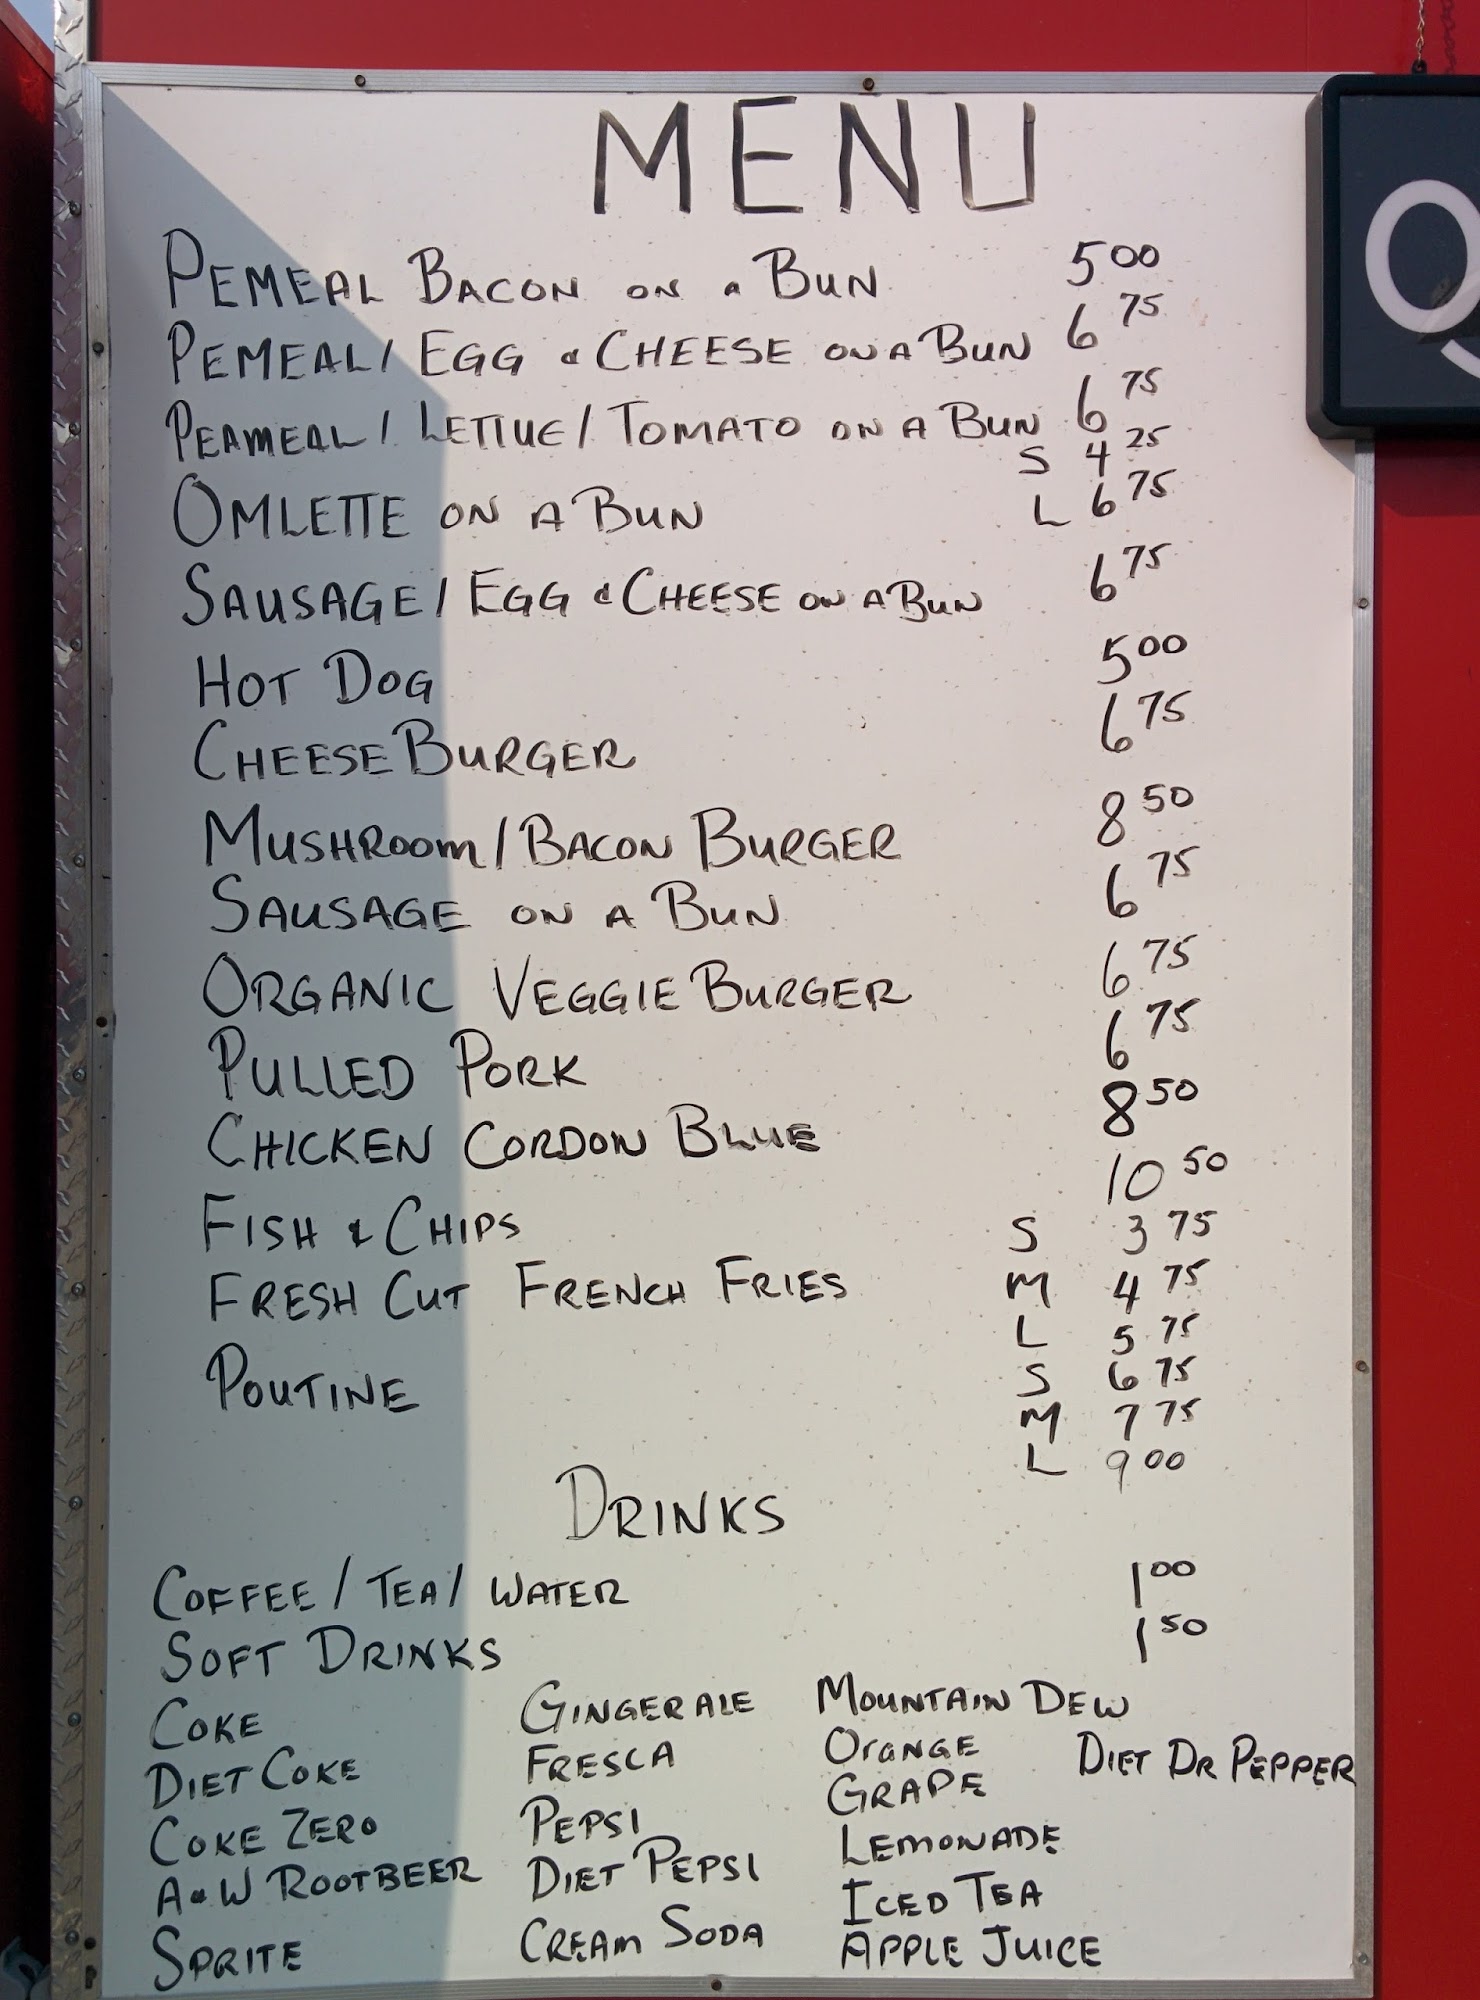 MENU
PEMEAL BACON ON A BUN 5 00
PEMEAL / EGG & CHEESE ON A BUN 6 75
PEAMEAL / LETTUE / TOMATO ON A BUN 6 75
S 4 25
OMLETTE ON A BUN L 6 75
SAUSAGE / EGG & CHEESE ON A BUN 6 75
HOT DOG 5 00
CHEESE BURGER 6 75
MUSHROOM / BACON BURGER 8 50
SAUSAGE ON A BUN 6 75
ORGANIC VEGGIE BURGER 6 75
PULLED PORK 6 75
CHICKEN CORDON BLUE 8 50
FISH & CHIPS 10 50
S 3 75
FRESH CUT FRENCH FRIES M 4 75
L 5 75
POUTINE S 6 75
M 7 75
L 9 00
DRINKS
COFFEE / TEA / WATER 1 00
SOFT DRINKS 1 50
COKE GINGERALE MOUNTAIN DEW
DIET COKE FRESCA ORANGE DIET DR PEPPER
GRAPE
COKE ZERO PEPSI LEMONADE
A&W ROOTBEER DIET PEPSI ICED TEA
SPRITE CREAM SODA APPLE JUICE